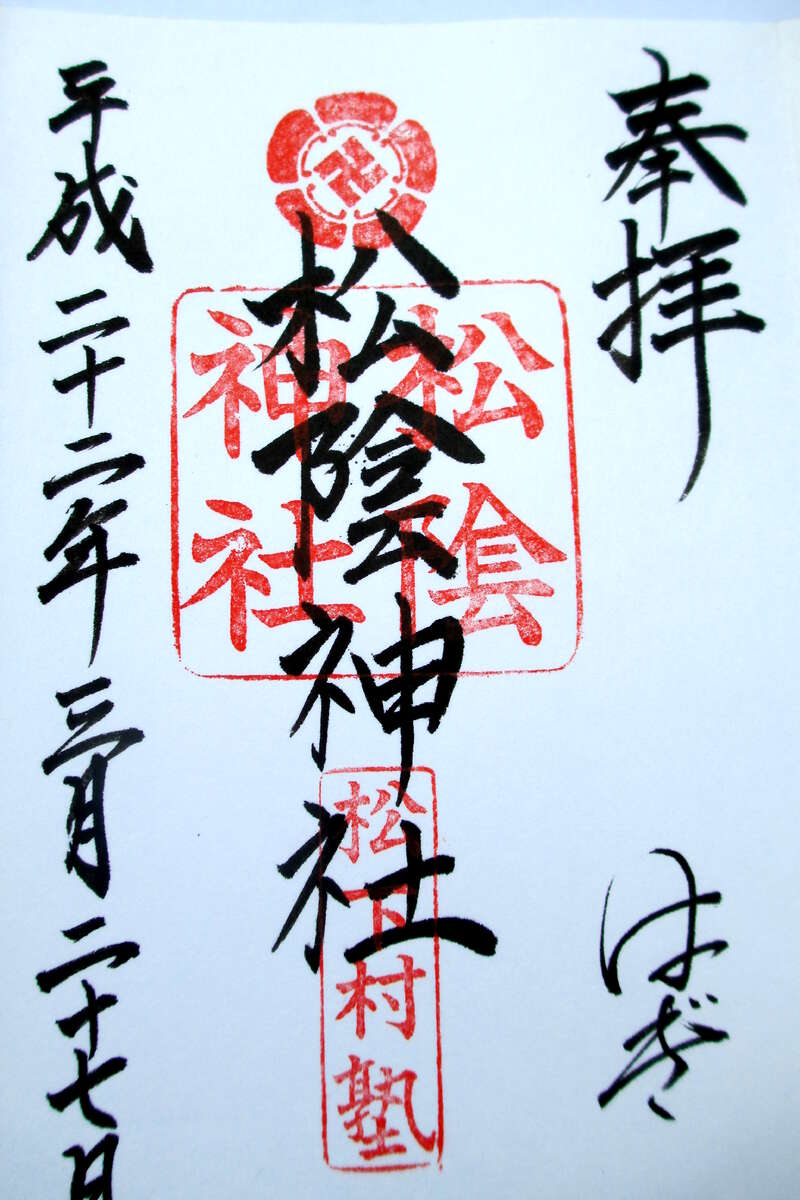 奉拝
はぎ
松陰神社
松陰
神社
松下村塾
平成二十二年三月二十七日